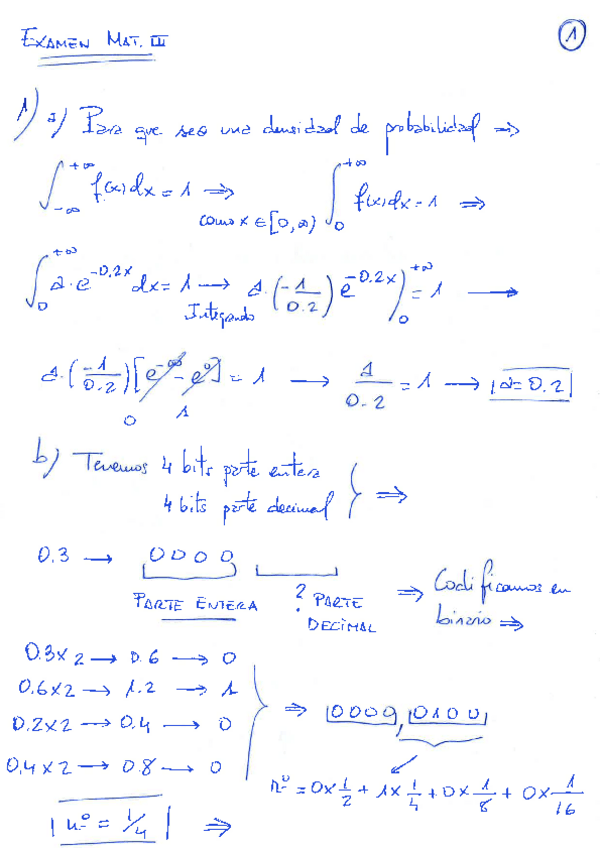 EXAMEN MAT. III
1
1) a) Para que sea una densidad de probabilidad ⇒
∫_{-∞}^{+∞} f(x) dx = 1 ⇒ como x ∈ [0, ∞) ∫_0^{+∞} f(x) dx = 1 ⇒
∫_0^{+∞} a·e^{-0.2x} dx = 1 → Integrando a·(-1/0.2) e^{-0.2x} )_0^{+∞} = 1 →
a·(-1/0.2) [e^{-∞} - e^0] = 1 → a/0.2 = 1 → |a = 0.2|
0 1
b) Tenemos 4 bits parte entera
4 bits parte decimal } ⇒
0.3 → 0000
PARTE ENTERA ? PARTE DECIMAL ⇒ Codificamos en binario ⇒
0.3x2 → 0.6 → 0
0.6x2 → 1.2 → 1
0.2x2 → 0.4 → 0
0.4x2 → 0.8 → 0
} ⇒ 0000,0100
nº = 0x1/2 + 1x1/4 + 0x1/8 + 0x1/16
|nº = 1/4| ⇒